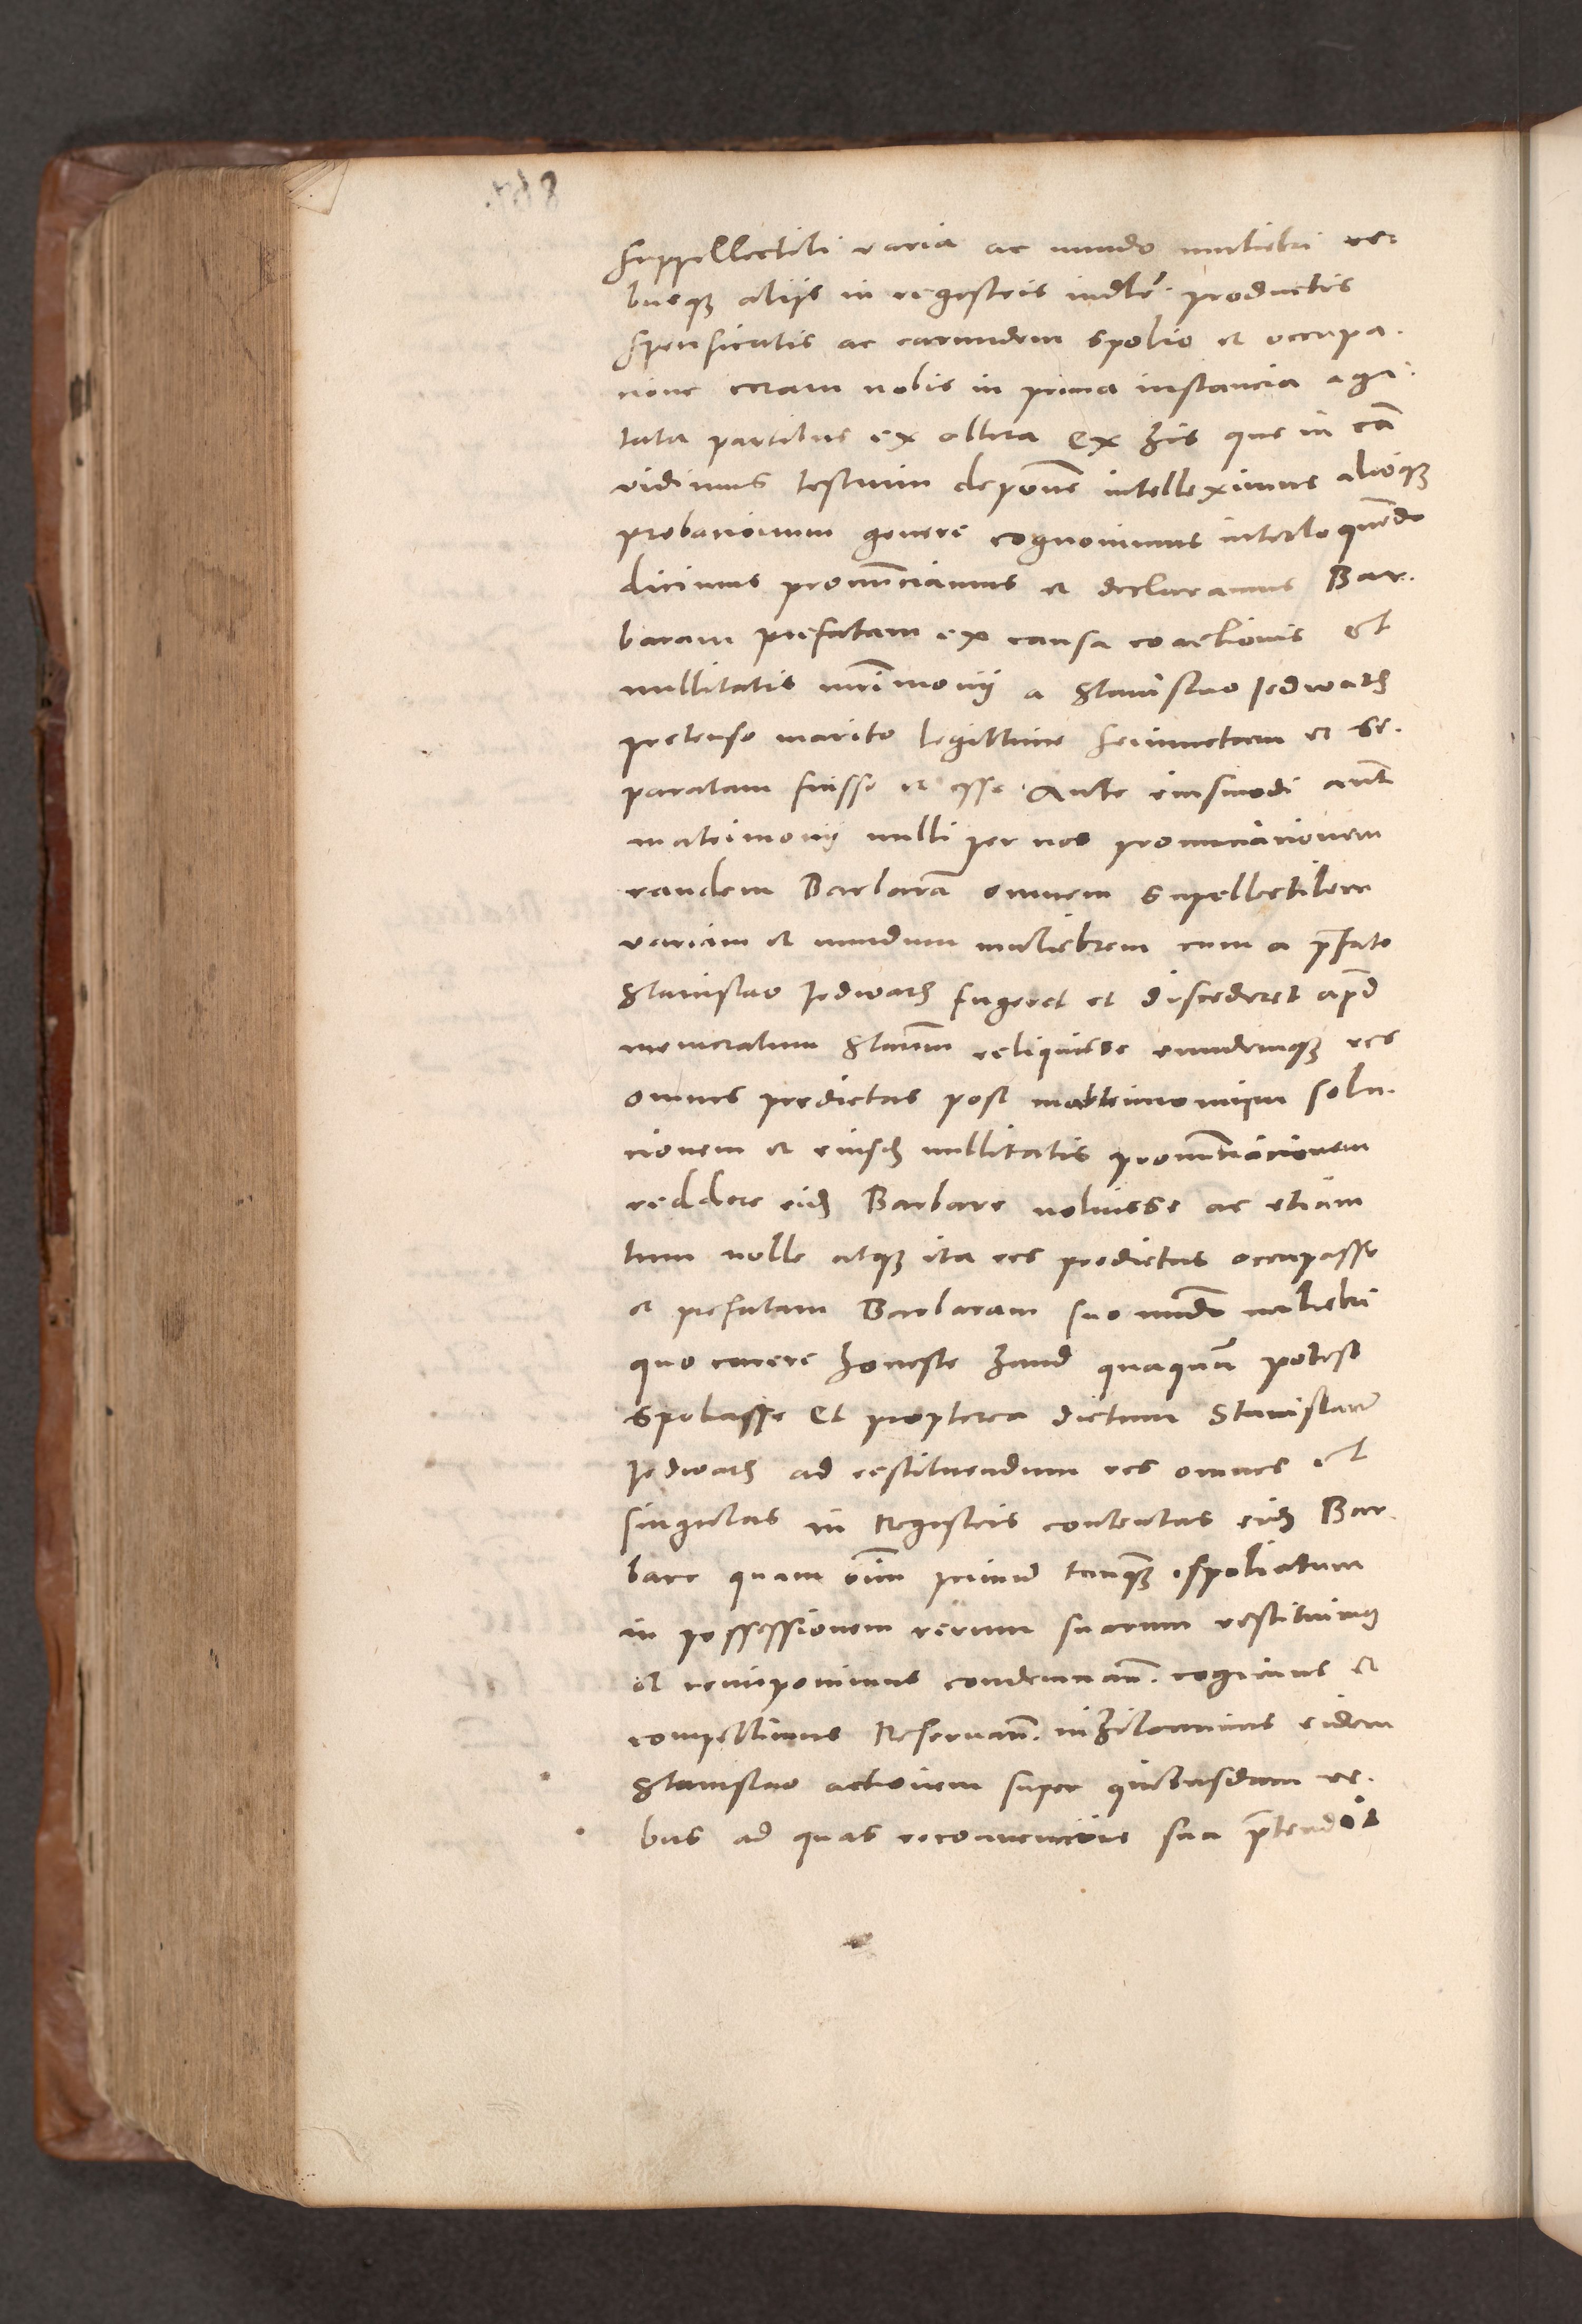 suppellectili varia ac mundo muliebri re-
busq3 alijs in regestris iudlr̄. productis
specificatis ac earundem spolio et occupa-
cione coram nobis in prima instancia agi-
tata partibus ex altera Ex his que in cā
vidimus testium deponē intelleximus alioq3
probacionum genere cognovimus interloquendo
dicimus pronuncciamus et declaramus Bar-
baram prefatam ex causa coactionis et
nullitatis mr̄imonij a Stanislao Jedwath
pretenso marito legittime seiunctam et se-
paratam fuisse et esse. Ante eiusmodi aūt
matrimonij nulli per nos pronunciacionem
eandem Barbarā omnem supellectilem
variam et mundum muliebrem cum a p̄fato
Stanislao Jedwath fugeret et discederet apd
memoratum Stanm̄ reliquisse eundemq3 res
omnes predictas post mattrimonium solu-
cionem et eiusd nullitatis pronuncciacionem
reddere eid Barbare noluisse ac etiam
tum nolle atq3 ita res predictas occupasse
et prefatam Barbaram suo mūdo muliebri
quo carere honeste haud quaquā potest
spoliasse Et propterea dictum Stanislaū
Jedwath ad restituendum res omnes et
singulas in Regestris contentas eid Bar-
bare quam oīm primū tanq3 spoliatam
in possessionem rerum suarum restituimus
et reimponimus condemnan̄. cogimus et
compellimus Reservan̄. inhilominus eidem
Stanislao actionem super quibusdam re-
bus ad quas reconvencione sua p̄tendit